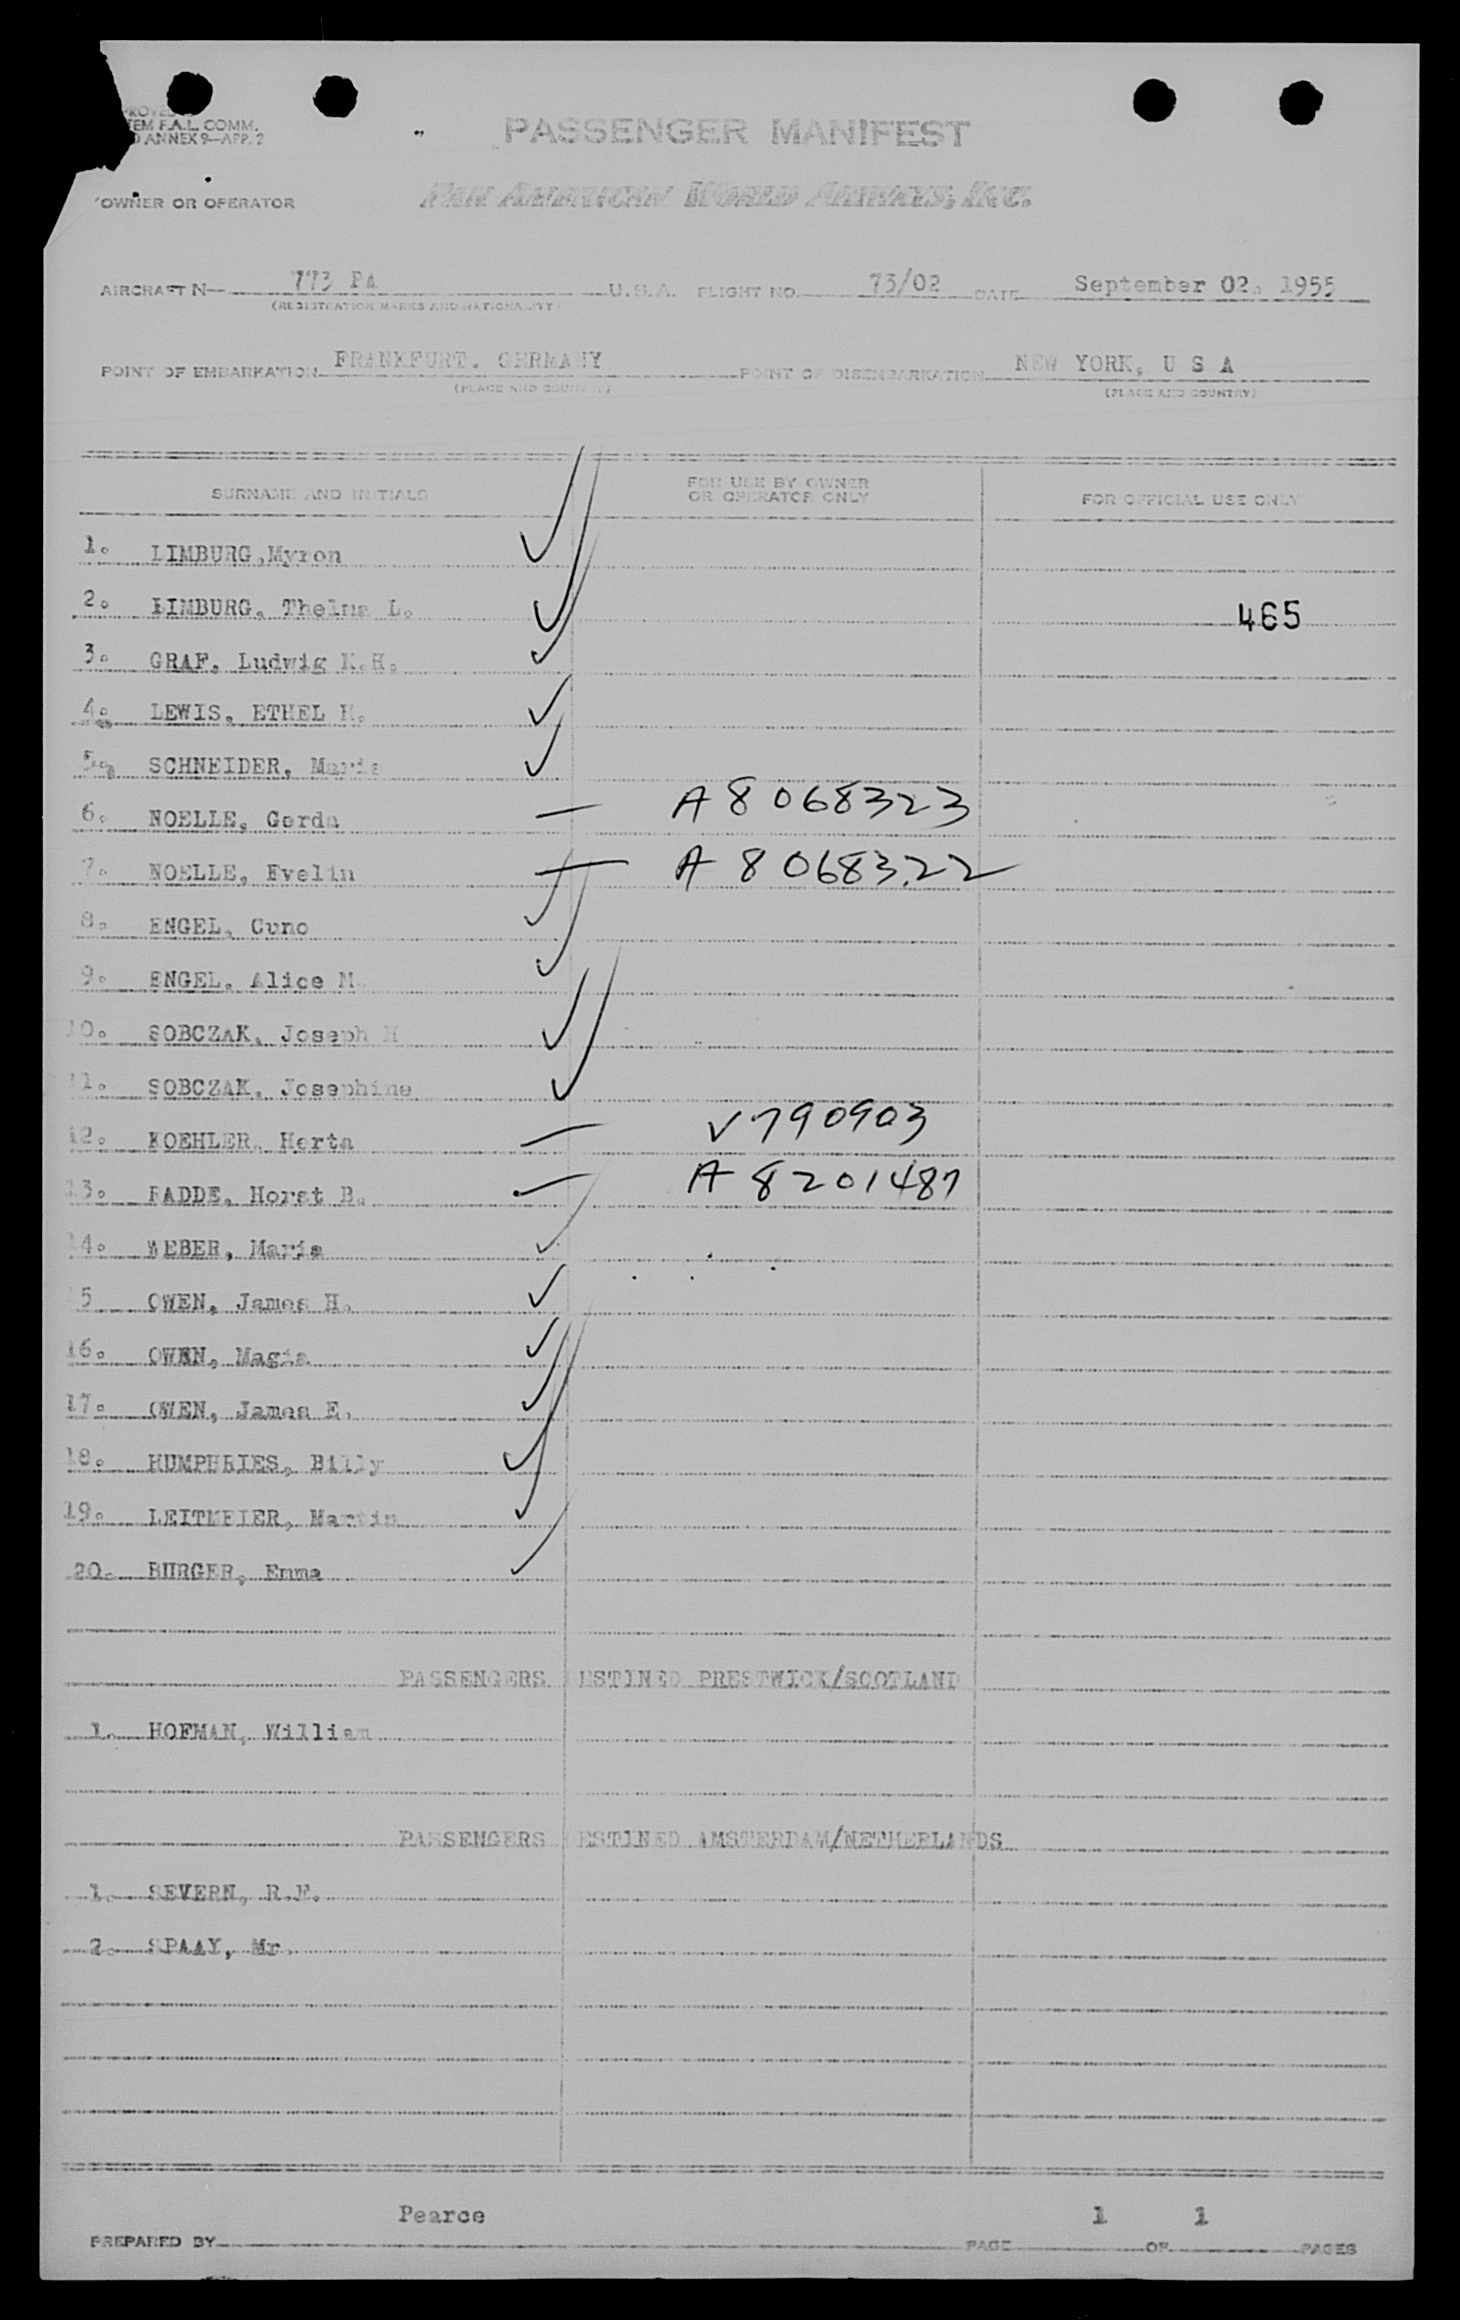 PROVED
TEM F.A.L. COMM.
ANNEX 9—APP. 2
PASSENGER MANIFEST
OWNER OR OPERATOR PAN AMERICAN WORLD AIRWAYS, INC.
AIRCRAFT N— 773 PA U.S.A. FLIGHT NO. 73/02 DATE September 02. 1955
(REGISTRATION MARKS AND NATIONALITY)
POINT OF EMBARKATION FRANKFURT. GERMANY POINT OF DISEMBARKATION NEW YORK, U S A
(PLACE AND COUNTRY) (PLACE AND COUNTRY)
SURNAME AND INITIALS FOR USE BY OWNER OR OPERATOR ONLY FOR OFFICIAL USE ONLY
1. LIMBURG,Myron
2. LIMBURG, Thelma L. 465
3. GRAF, Ludwig K.H.
4. LEWIS, ETHEL H.
5. SCHNEIDER, Maria
6. NOELLE, Gerda — A 8 068323
7. NOELLE, Evelin — A 8 068322
8. ENGEL, Cuno
9. ENGEL, Alice M
10. SOBCZAK, Joseph H
11. SOBCZAK, Josephine
12. KOEHLER, Herta — V790903
13. RADDE, Horst B. — A 8201487
14. WEBER, Maria
15 OWEN, James H.
16. OWEN, Magia
17. OWEN, James E.
18. HUMPHRIES, Billy
19. LEITMEIER, Martin
20. BURGER, Emma
PASSENGERS ESTINED PRESTWICK/SCOTLAND
1. HOFMAN, William
PASSENGERS ESTINED AMSTERDAM/NETHERLANDS
1. SEVERN, R.F.
2. SPAAY, Mr.
PREPARED BY Pearce PAGE 1 OF 1 PAGES